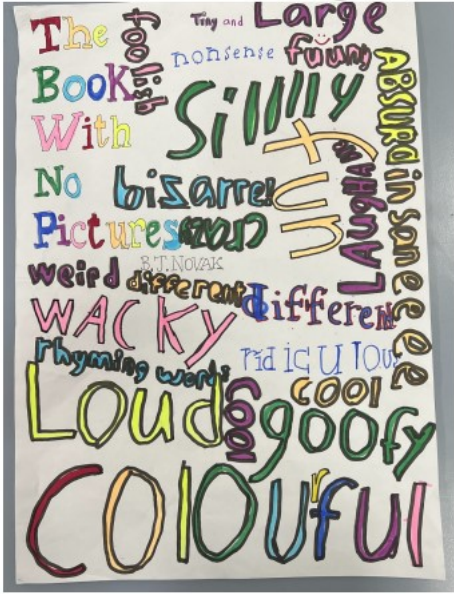 The
Book
With
No
Pictures
foolish
Tiny and Large
nonsense
fuuny
Sillly
fun
ABSURd
insaneeeee
bizarre!
LAUGHABLE
crazy
B.T.NOVAK
weird
different
different
WACKY
rhyming words
ridiculous
Loud
cool
cool
goofy
Colourful